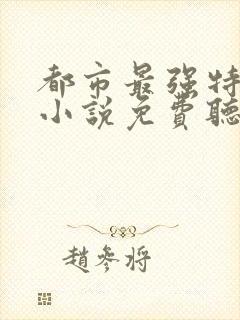 都市最强特
小說免費聽
趙參將